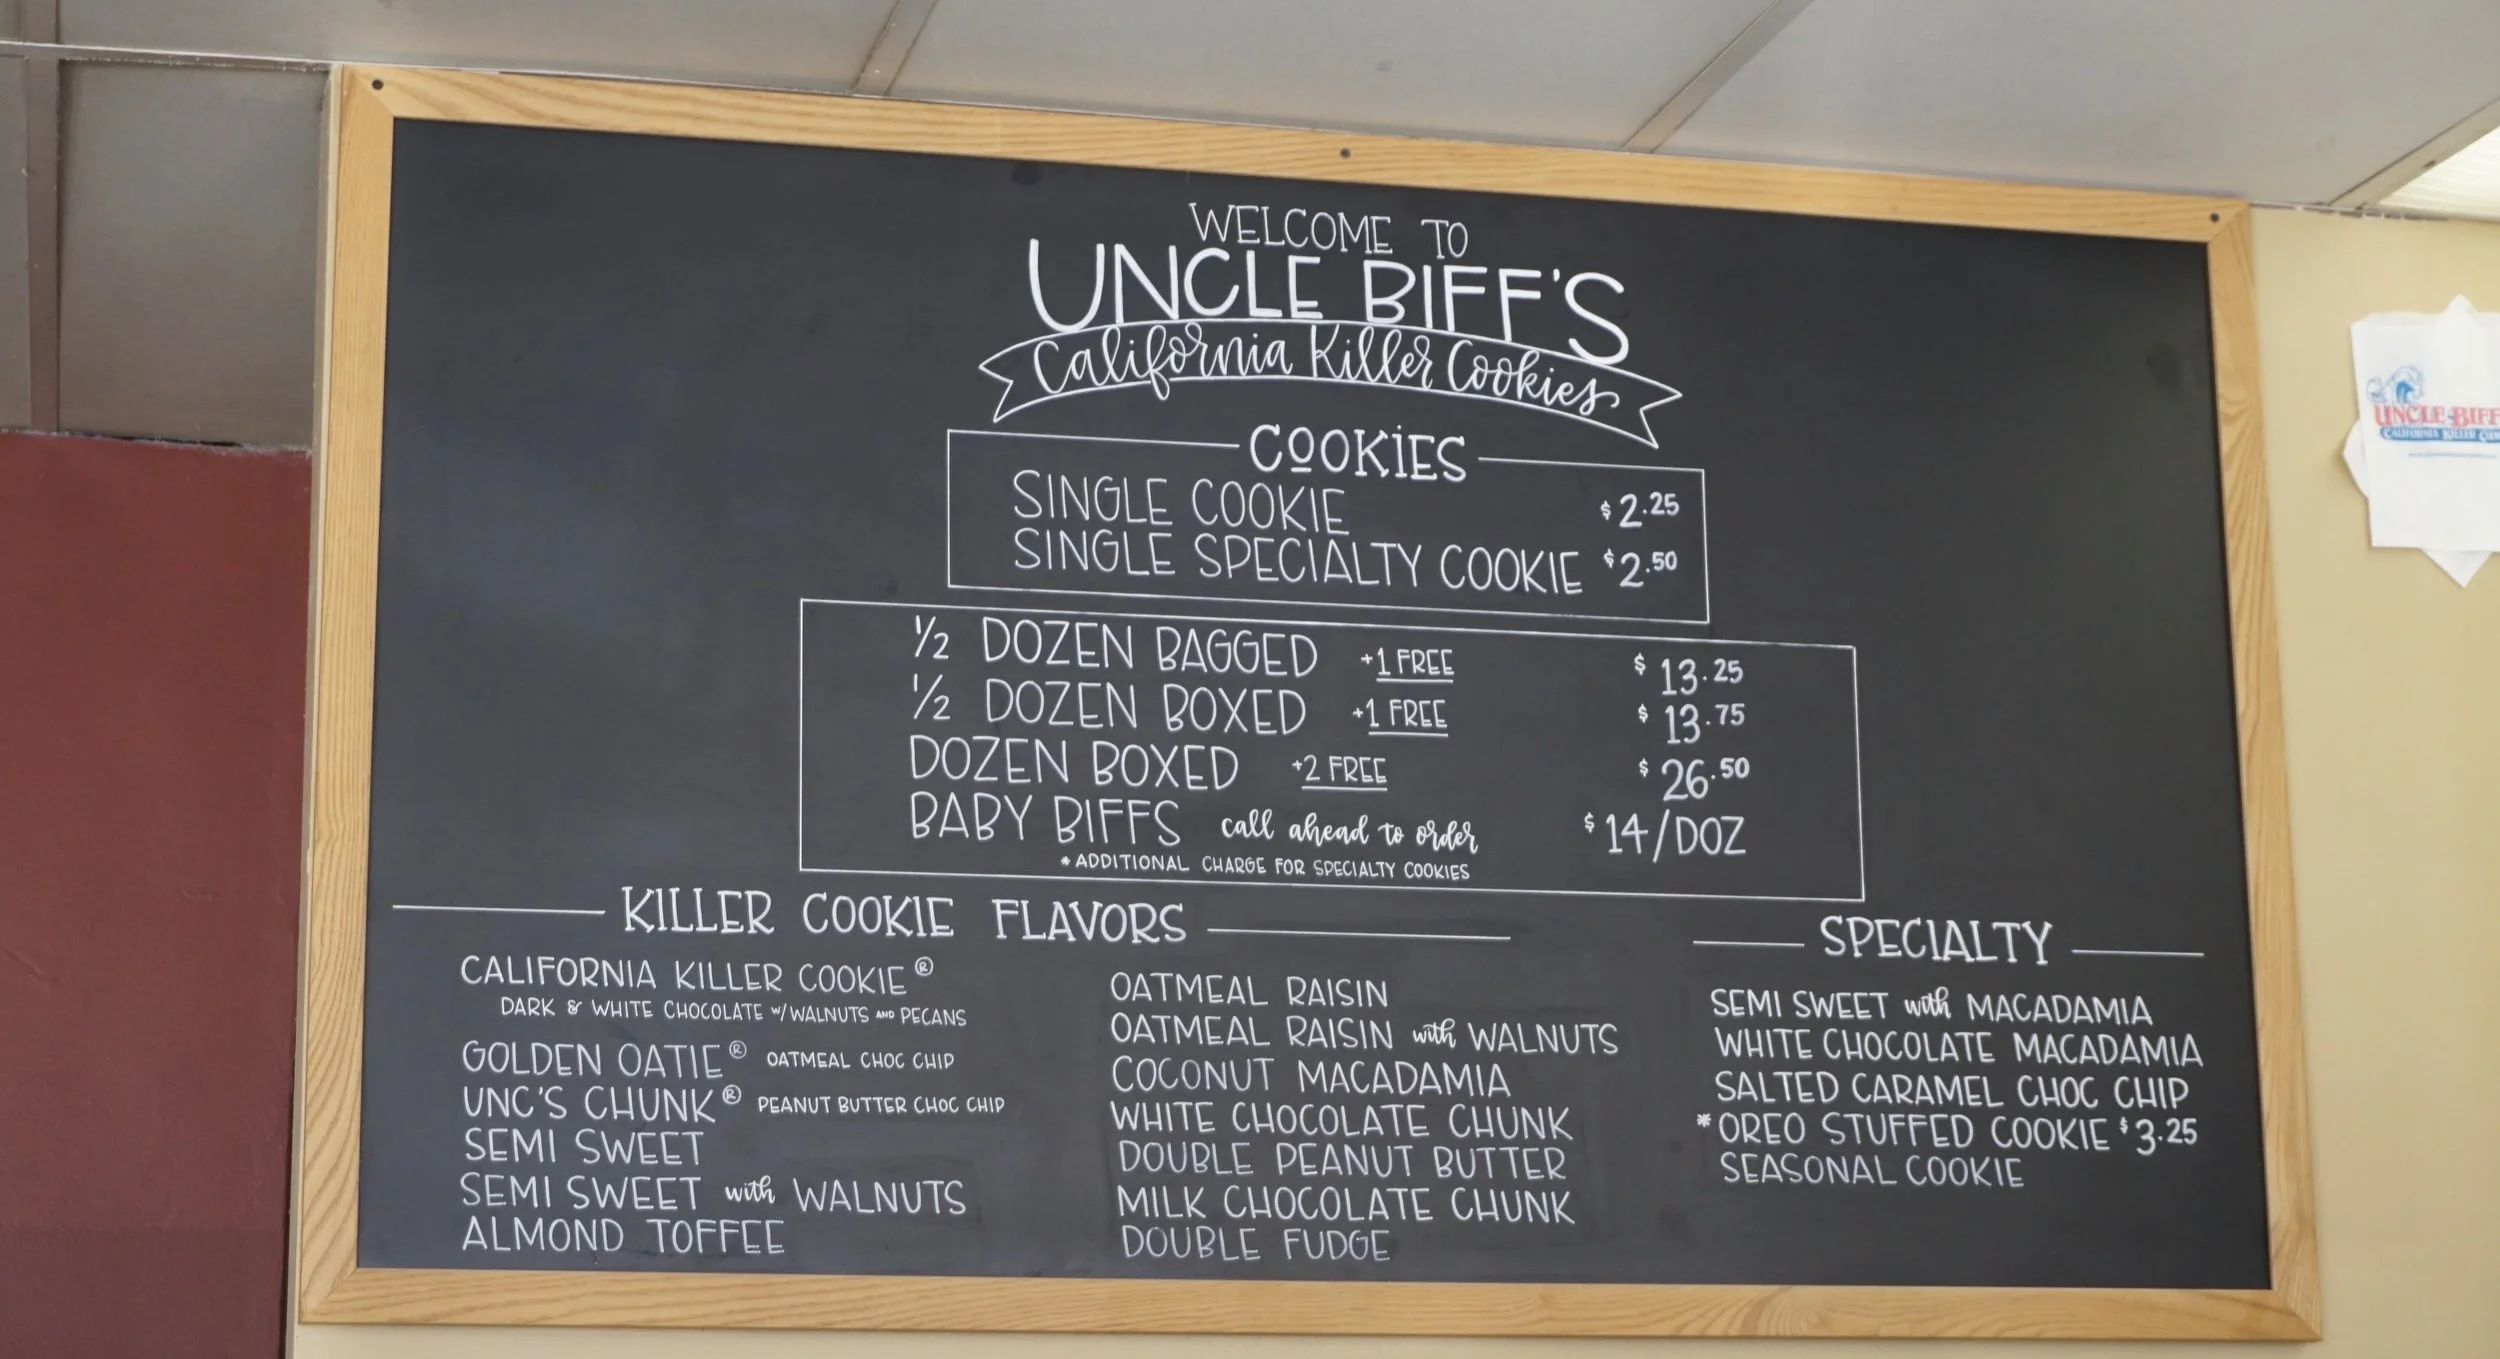 WELCOME TO
UNCLE BIFF'S
California Killer Cookies
COOKIES
SINGLE COOKIE $2.25
SINGLE SPECIALTY COOKIE $2.50
1/2 DOZEN BAGGED +1 FREE $13.25
1/2 DOZEN BOXED +1 FREE $13.75
DOZEN BOXED +2 FREE $26.50
BABY BIFFS call ahead to order $14/DOZ
*ADDITIONAL CHARGE FOR SPECIALTY COOKIES
KILLER COOKIE FLAVORS
CALIFORNIA KILLER COOKIE®
DARK & WHITE CHOCOLATE W/WALNUTS AND PECANS
GOLDEN OATIE® OATMEAL CHOC CHIP
UNC'S CHUNK® PEANUT BUTTER CHOC CHIP
SEMI SWEET
SEMI SWEET with WALNUTS
ALMOND TOFFEE
OATMEAL RAISIN
OATMEAL RAISIN with WALNUTS
COCONUT MACADAMIA
WHITE CHOCOLATE CHUNK
DOUBLE PEANUT BUTTER
MILK CHOCOLATE CHUNK
DOUBLE FUDGE
SPECIALTY
SEMI SWEET with MACADAMIA
WHITE CHOCOLATE MACADAMIA
SALTED CARAMEL CHOC CHIP
*OREO STUFFED COOKIE $3.25
SEASONAL COOKIE
UNCLE BIFF
CALIFORNIA KILLER